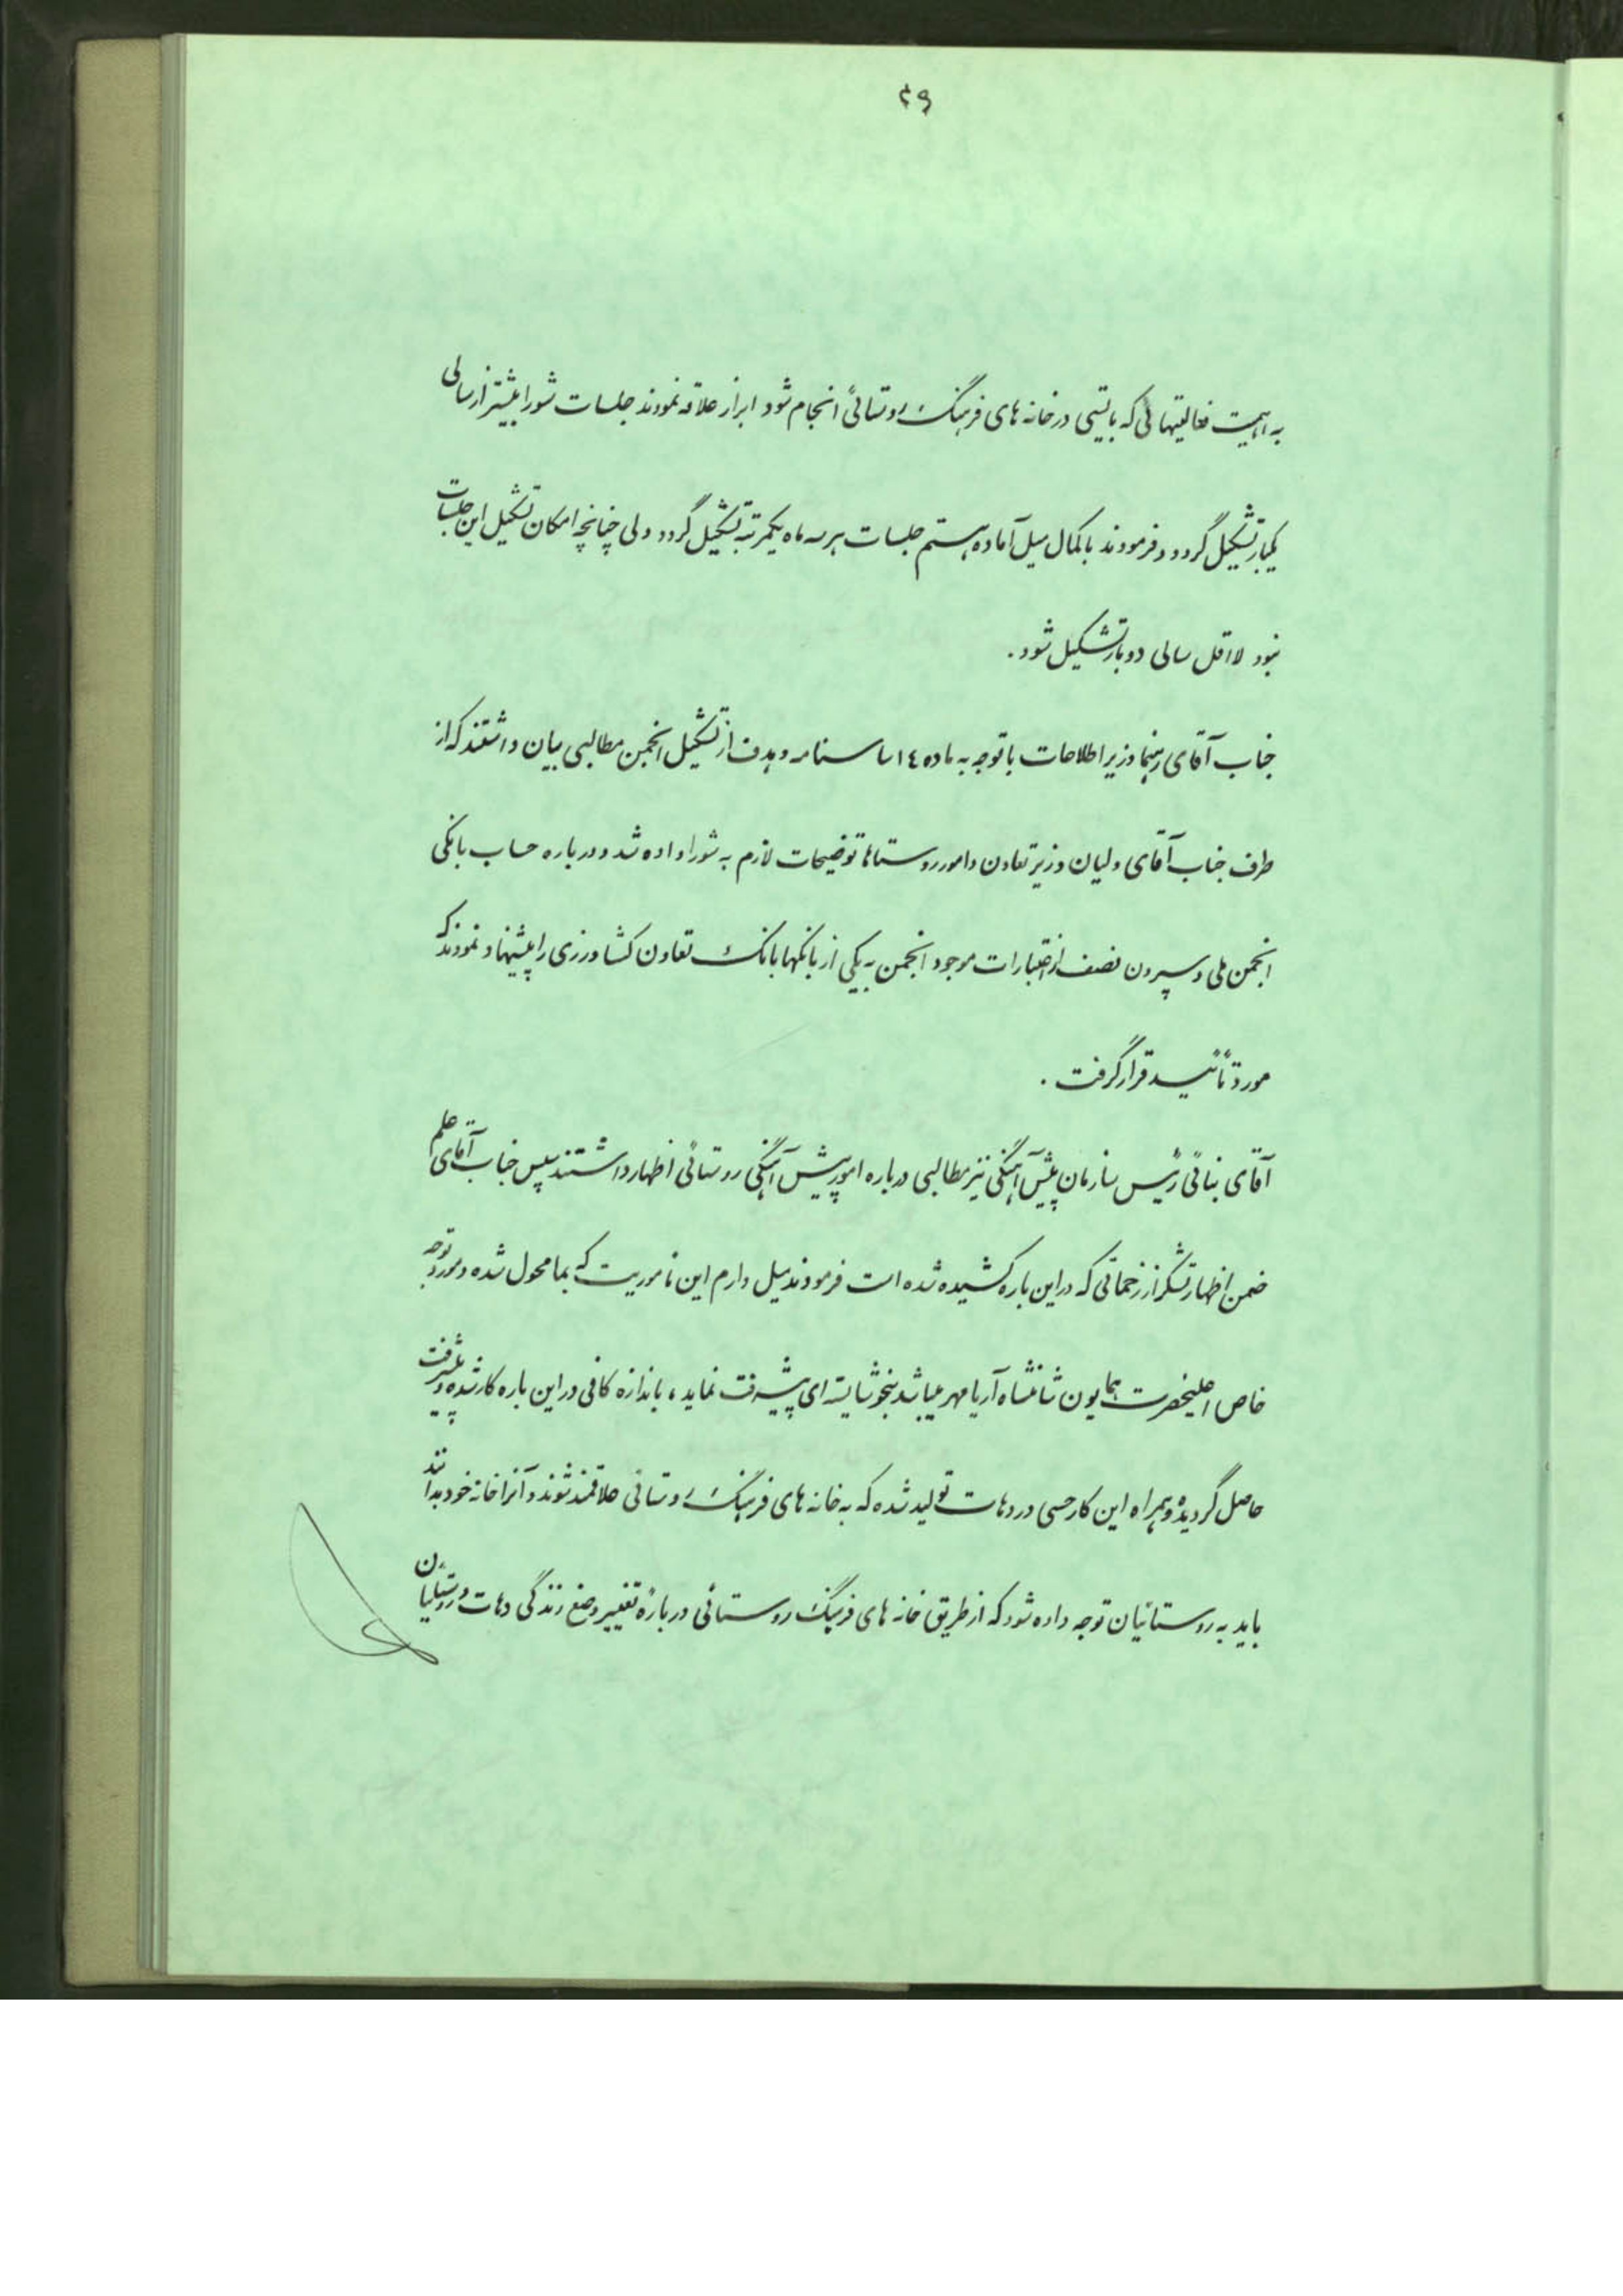 ۲۹
به اهمیت فعالیتهائی که بایستی در خانه های فرهنگ روستائی انجام شود ابراز علاقه نمودند جلسات شورا بیشتر از سالی
یکبار تشکیل گردد و فرمودند با کمال میل آماده هستم جلسات هر سه ماه یکمرتبه تشکیل گردد ولی چنانچه امکان تشکیل این جلسات
نبود لااقل سالی دوبار تشکیل شود .
جناب آقای رهنما وزیر اطلاعات با توجه به ماده ۱۴ اساسنامه و هدف از تشکیل انجمن مطالبی بیان داشتند که از
طرف جناب آقای ولیان وزیر تعاون و امور روستاها توضیحات لازم به شورا داده شد و درباره حساب بانکی
انجمن ملی و سپردن نصف از اعتبارات موجود انجمن به یکی از بانکها بانک تعاون کشاورزی را پیشنهاد نمودند که
مورد تأئید قرار گرفت .
آقای بنائی رئیس سازمان پیش آهنگی نیز مطالبی درباره امور پیش آهنگی روستائی اظهار داشتند سپس جناب آقای علم
ضمن اظهار تشکر از زحماتی که در این باره کشیده شده است فرمودند میل دارم این مأموریت که بما محول شده و مورد توجه
خاص اعلیحضرت همایون شاهنشاه آریامهر میباشد بنحو شایسته ای پیشرفت نماید ، باندازه کافی در این باره کار شده و پیشرفت
حاصل گردیده و همراه این کار حسی در دهات تولید شده که به خانه های فرهنگ روستائی علاقمند شوند و آنرا خانه خود بدانند
باید به روستائیان توجه داده شود که از طریق خانه های فرهنگ روستائی درباره تغییر وضع زندگی دهات و روستائیان